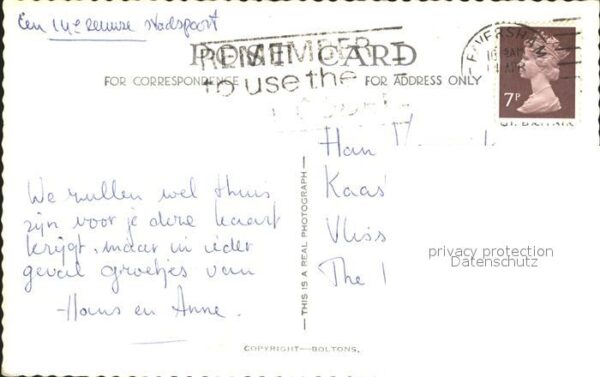 Een 14e eeuwse stadspoort
POST CARD
REMEMBER
to use the
FOR CORRESPONDENCE
FOR ADDRESS ONLY
FAVERSHAM
AM
7P
GT. BRITAIN
Hain
Kaas
Vliss
The
We zullen wel thuis
zijn voor je deze kaart
krijgt, maar in ieder
geval groetjes van
Hans en Anne.
THIS IS A REAL PHOTOGRAPH
COPYRIGHT—BOLTONS,
privacy protection
Datenschutz